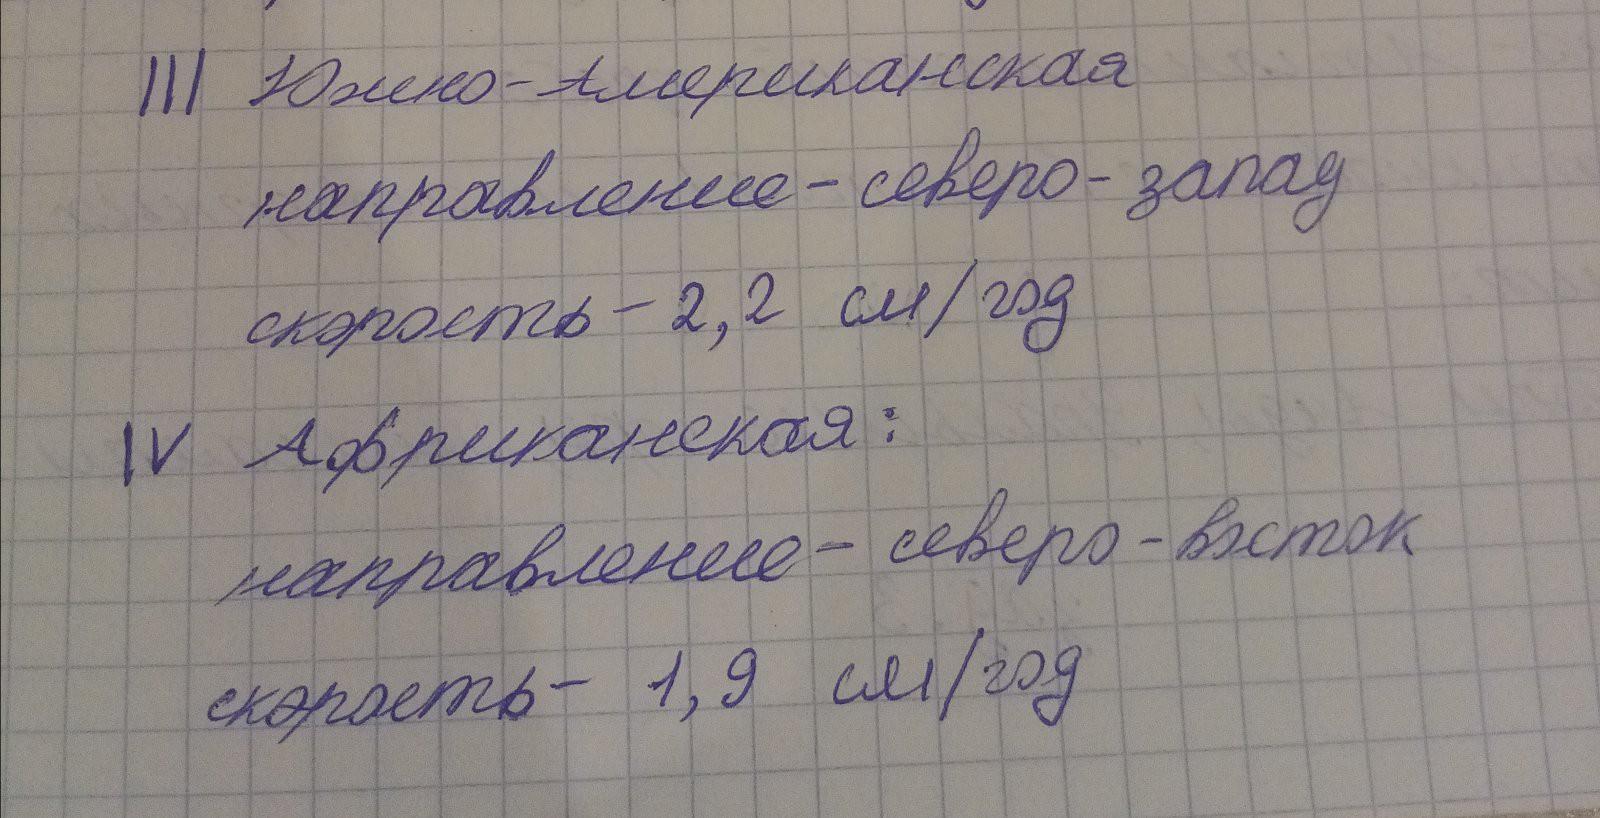 III Южно-Американская
направление - северо-запад
скорость - 2,2 см/год
IV Африканская:
направление - северо-восток
скорость - 1,9 см/год